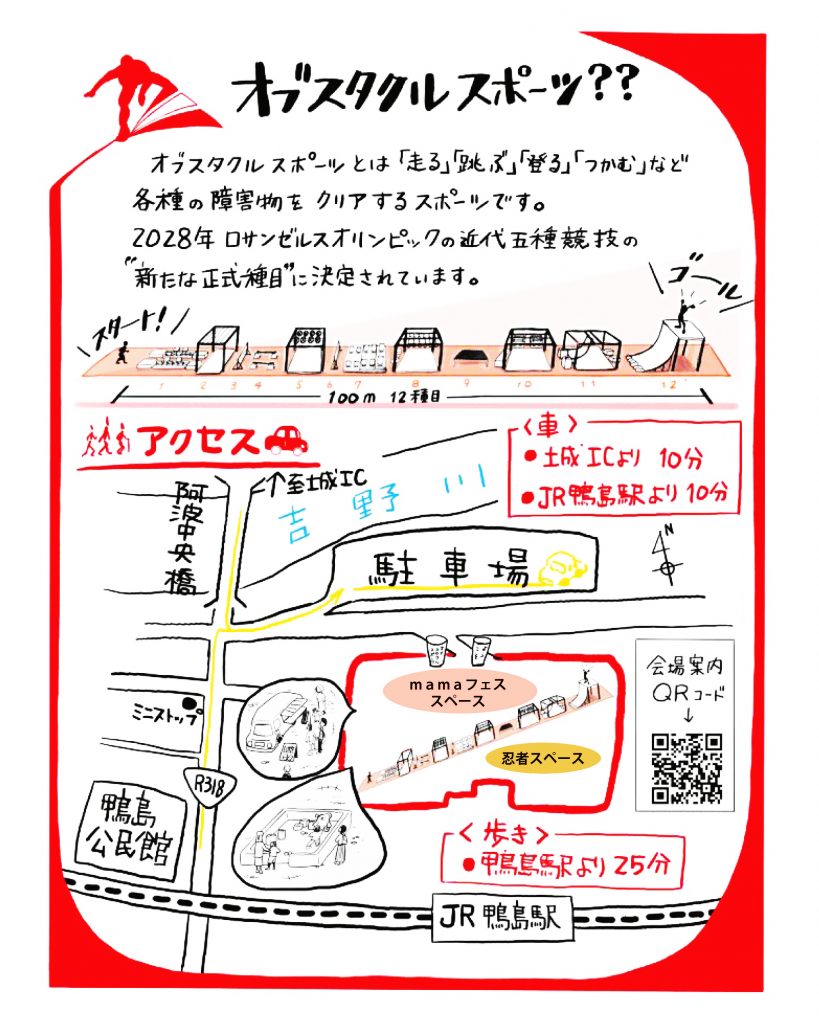 オブスタクルスポーツ??
オブスタクルスポーツとは「走る」「跳ぶ」「登る」「つかむ」など
各種の障害物をクリアするスポーツです。
2028年ロサンゼルスオリンピックの近代五種競技の
"新たな正式種目"に決定されています。
スタート!
ゴール
1 2 3 4 5 6 7 8 9 10 11 12
100m 12種目
アクセス
〈車〉
●土成ICより 10分
●JR鴨島駅より 10分
↑至土成IC
阿波中央橋
吉野川
N
駐車場
mamaフェス
スペース
忍者スペース
会場案内
QRコード
↓
ミニストップ
R318
鴨島
公民館
〈歩き〉
●鴨島駅より 25分
JR鴨島駅